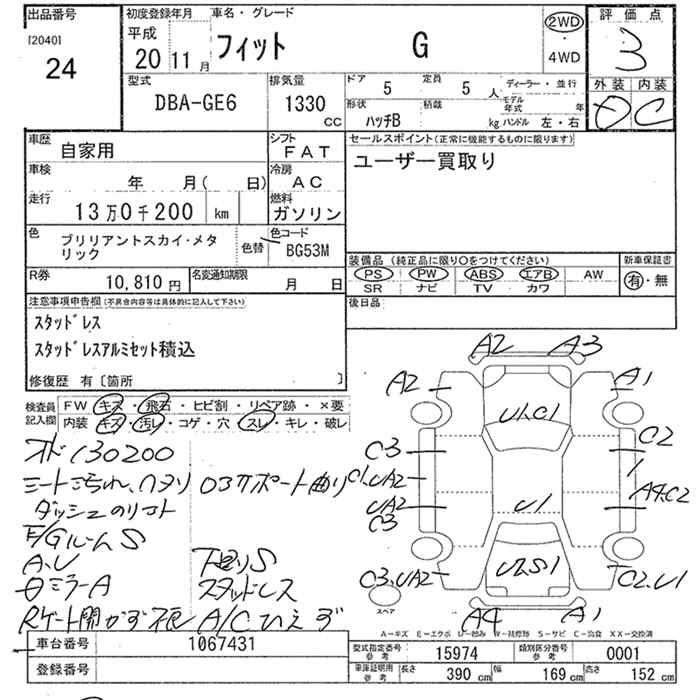 出品番号
[2040]
24
初度登録年月
平成
20 11 月
車名・グレード
フィット G
2WD
・
4WD
評価点
3
外装 内装
D C
型式
DBA-GE6
排気量
1330
cc
ドア 5
定員 5 人
ディーラー・並行
形状 ハッチB
積載 kg
モデル年式 年
ハンドル 左・右
車歴
自家用
シフト
FAT
セールスポイント(正常に機能するものに限ります)
ユーザー買取り
車検
年 月( 日)
冷房
AC
走行
13万0千200 km
燃料
ガソリン
色
ブリリアントスカイ・メタ
リック
色替
色コード
BG53M
R券
10,810円
名変通知期限
月 日
装備品 (純正品に限り○をつけてください)
PS PW ABS エアB AW
SR ナビ TV カワ
新車保証書
有・無
後日品
注意事項申告欄(不具合内容等は具体的に記入して下さい)
スタッドレス
スタッドレスアルミセット積込
修復歴 有〔箇所 〕
検査員
記入欄
FW キズ・飛石・ヒビ割・リペア跡・×要
内装 キズ・汚レ・コゲ・穴・スレ・キレ・破レ
オド130200
シートこちれ、ハヌソ ロアサポート曲り
ダッシュのリコト
F/Gルーム S
A、U 下廻りS
ミラーA スタッドレス
Rゲート開かず不良 A/Cひえず
A2 A3
A2 A1
U1.C1
C3 C2
C1.UA2
UA2 U1 A4.C2
C3
C3.UA2 U2.S1 C2.U1
スペア
A4 A1
A-キズ E-エクボ U-凹み W-補修跡 S-サビ C-腐食 XX-交換済
車台番号
1067431
登録番号
型式指定番号
参考
15974
類別区分番号
参考
0001
車庫証明用
参考
長さ 390 cm
幅 169 cm
高さ 152 cm